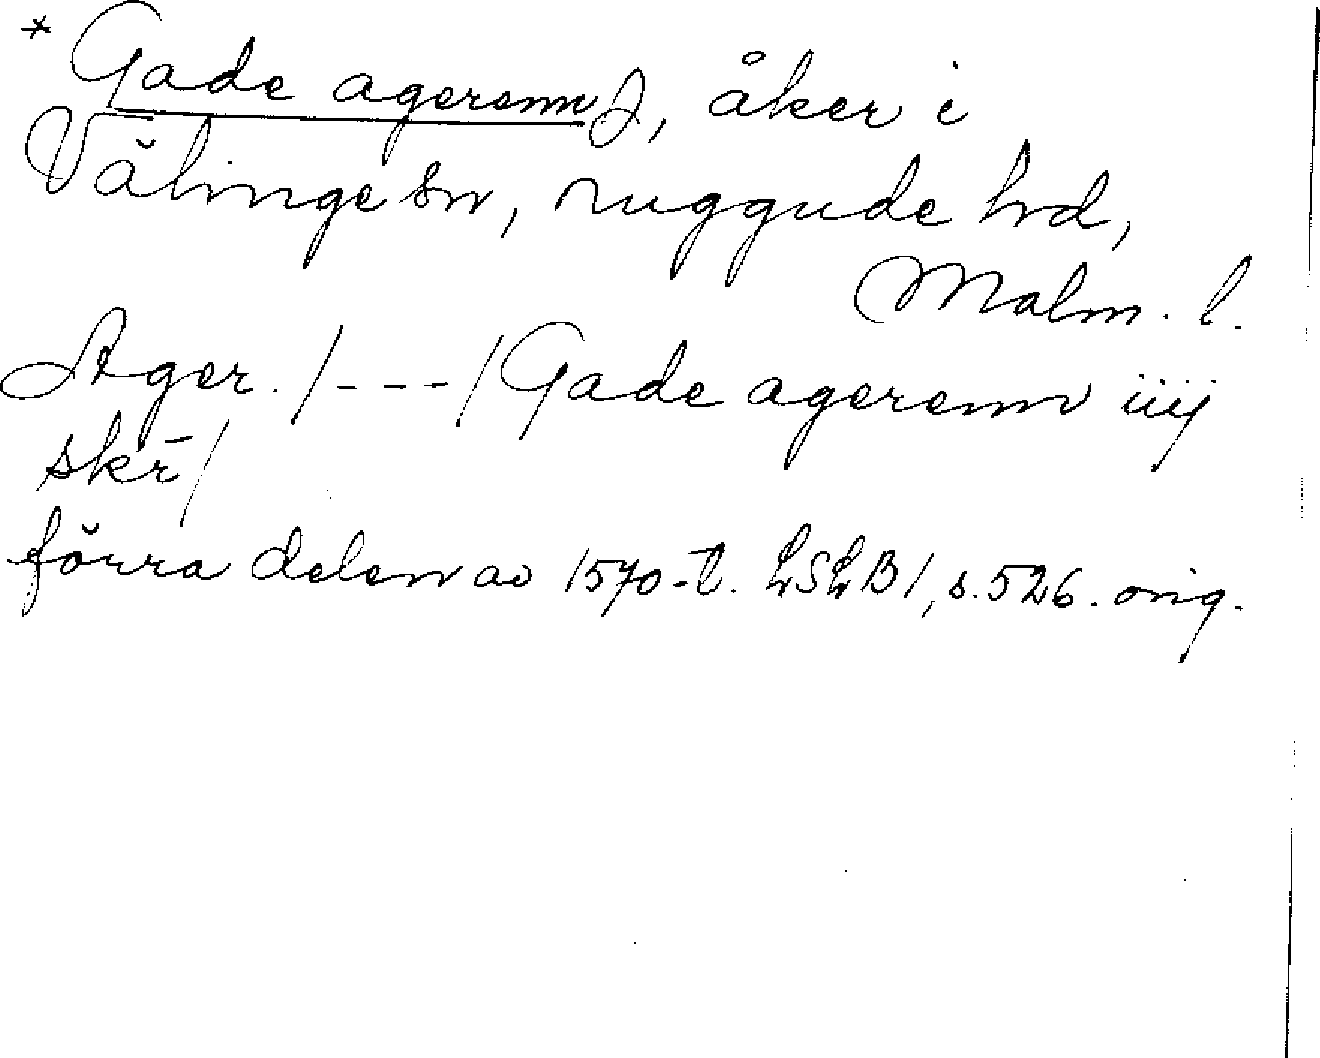 * Gade agerenn J, åker i
Välinge sn, Luggude hd,
Malm. l.
Ager. /---/ Gade agerenn iiij
skr̄/
förra delen av 1570-t. LSLB 1, s. 526. orig.